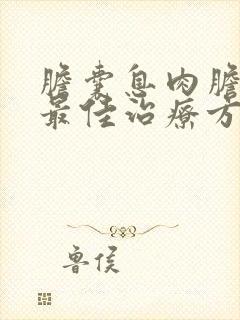 膽囊息肉膽
最佳治療方
魯侯